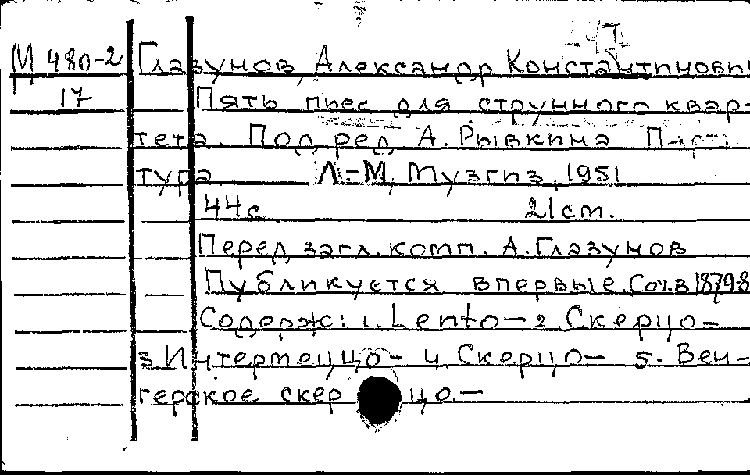 М 480-2 Глазунов, Александр Константинович
17 Пять пьес для струнного квар-
тета. Под ред. А. Рывкина Парти-
тура Л-М, Музгиз, 1951
44 с 21 cm.
Перед загл. комп. А. Глазунов
Публикуется впервые. Соч. в
Содерж: 1. Lento — 2. Скерцо —
3. Интермеццо — 4. Скерцо — 5. Вен-
герское скерцо. —